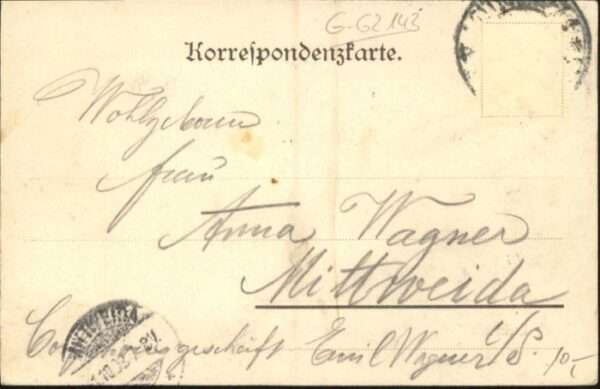 G. G2 143
Korrespondenzkarte.
Wohlgeboren
Frau
Anna Wagner
Mittweida
i/S.
MITTWEIDA
geschäft Emil Wagner 10,-